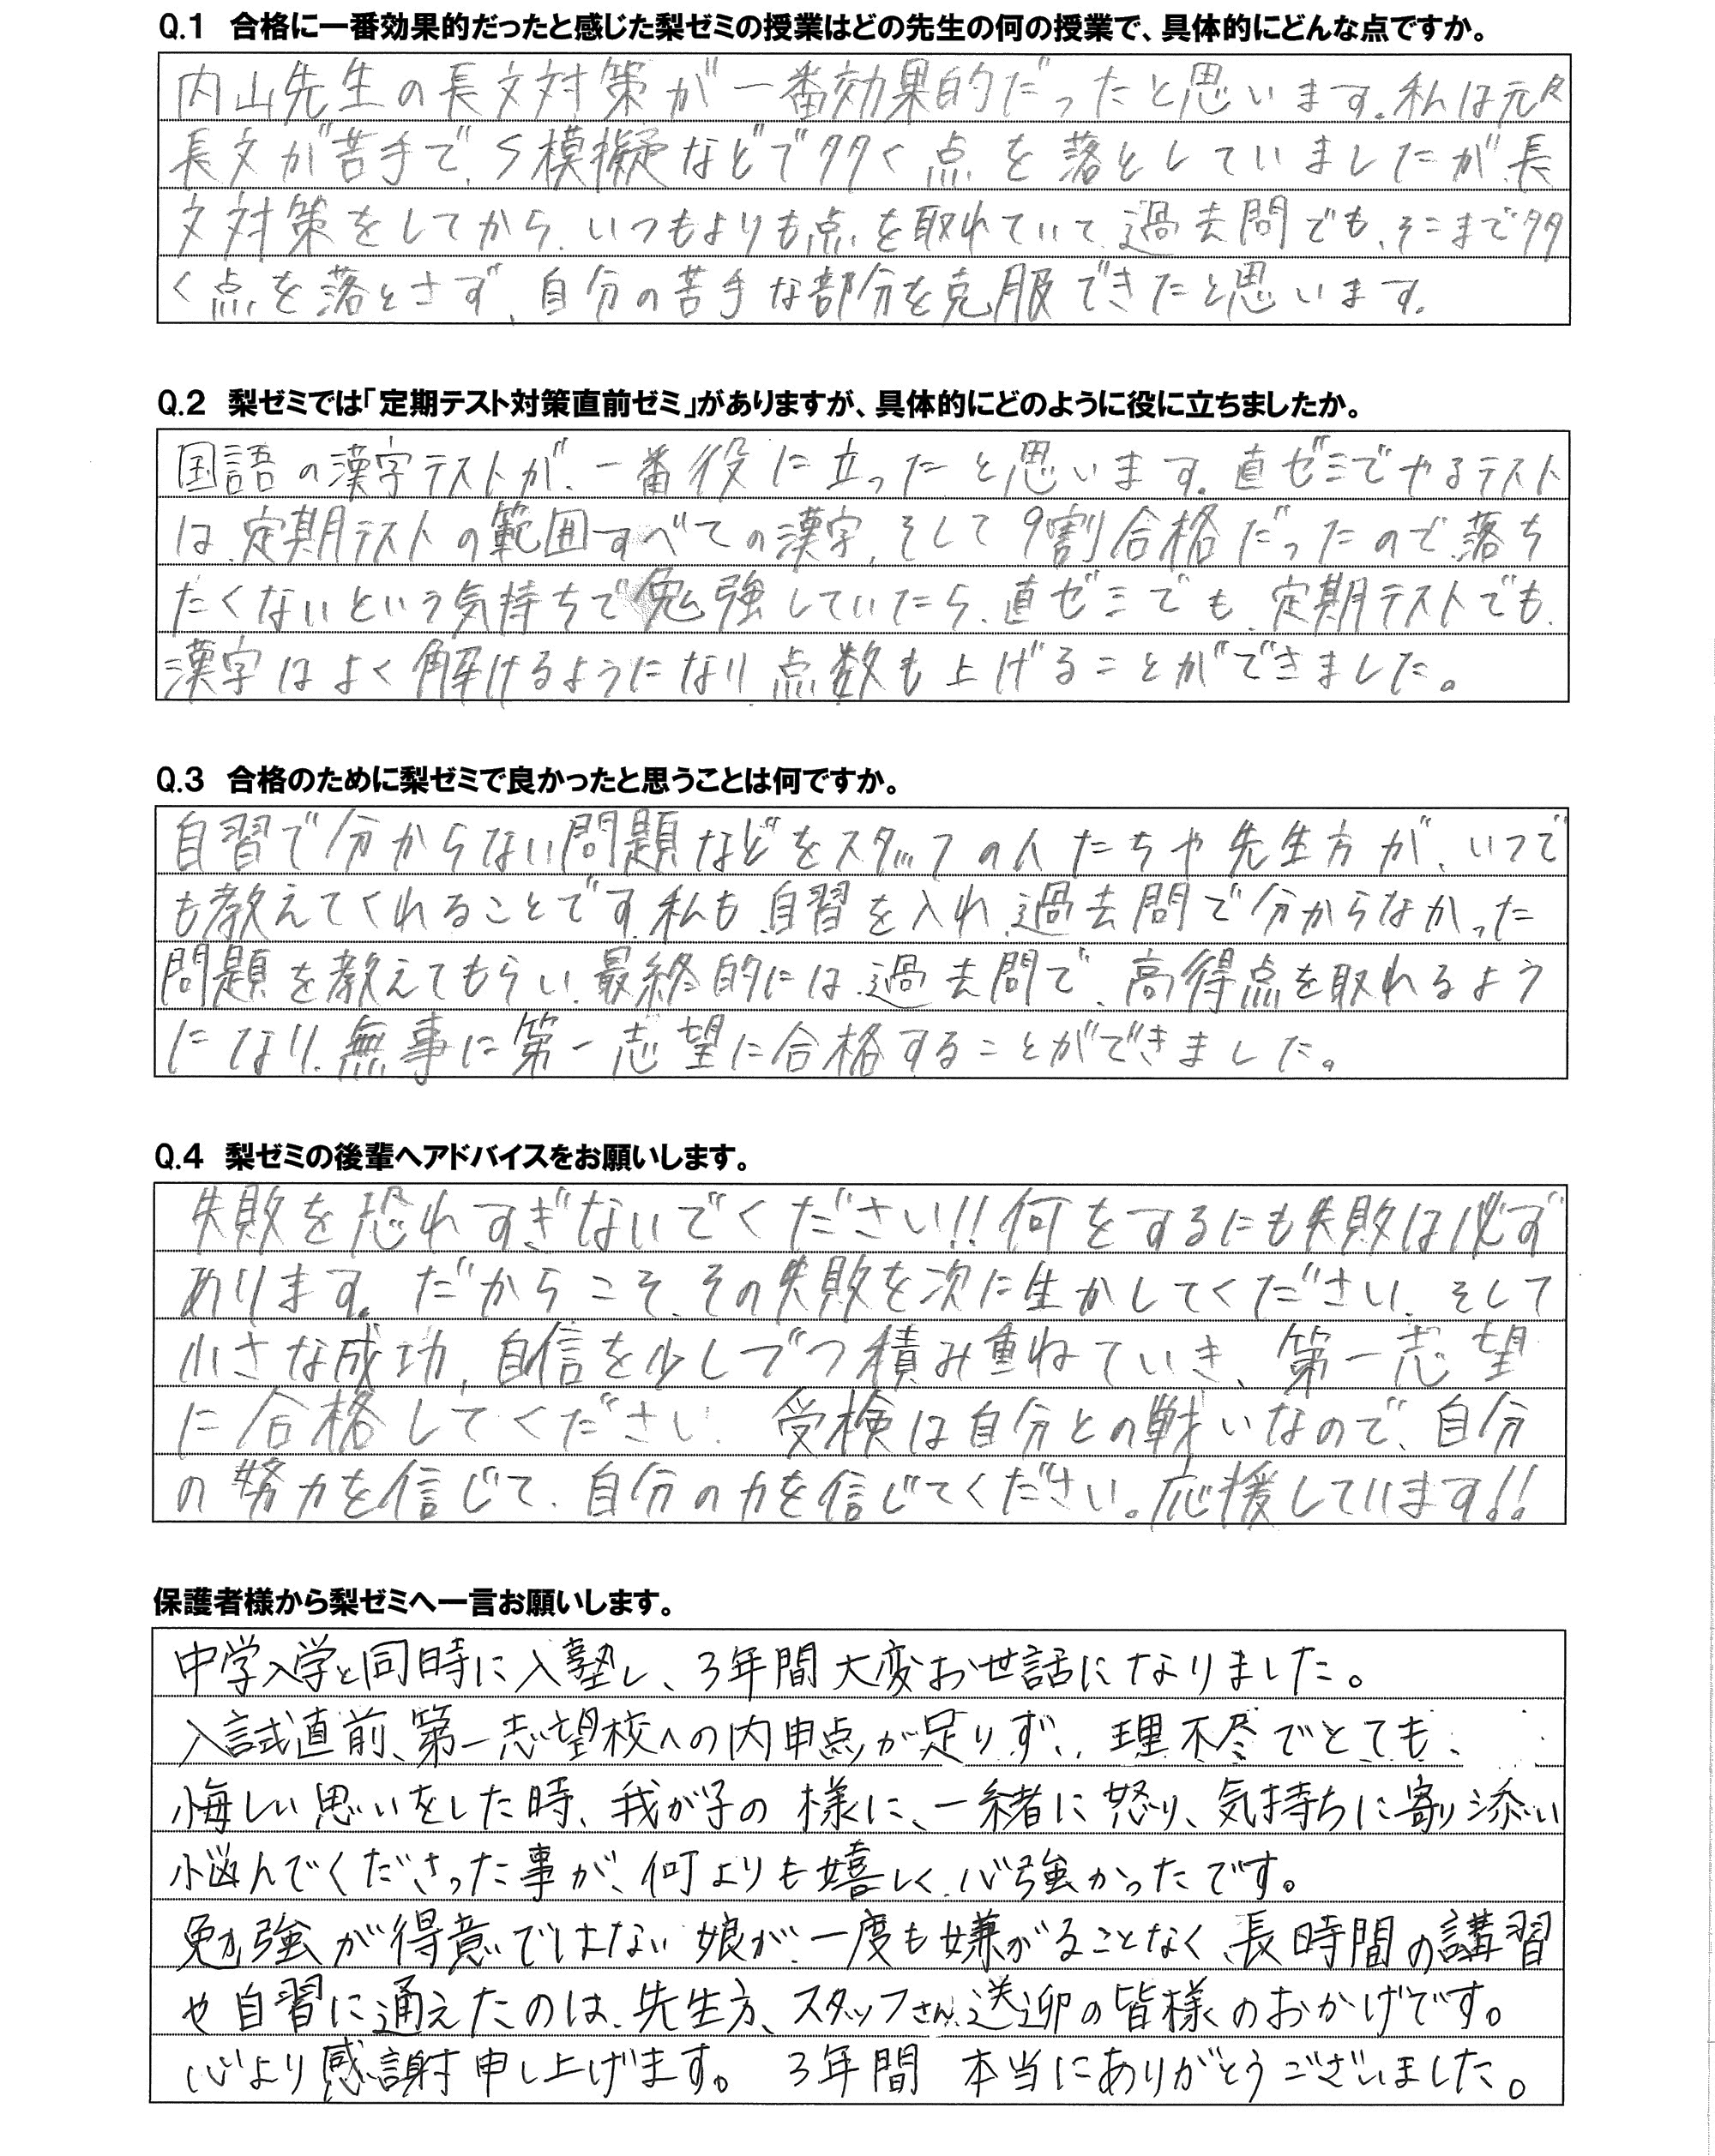 Q.1 合格に一番効果的だったと感じた梨ゼミの授業はどの先生の何の授業で、具体的にどんな点ですか。
内山先生の長文対策が一番効果的だったと思います。私は元々
長文が苦手で、S模擬などで多く点を落としていましたが、長
文対策をしてから、いつもよりも点を取れていて、過去問でも、そこまで多
く点を落とさず、自分の苦手な部分を克服できたと思います。
Q.2 梨ゼミでは「定期テスト対策直前ゼミ」がありますが、具体的にどのように役に立ちましたか。
国語の漢字テストが、一番役に立ったと思います。直ゼミでやるテスト
は、定期テストの範囲すべての漢字、そして9割合格だったので、落ち
たくないという気持ちで勉強していたら、直ゼミでも、定期テストでも、
漢字はよく解けるようになり、点数も上げることができました。
Q.3 合格のために梨ゼミで良かったと思うことは何ですか。
自習で分からない問題などをスタッフの人たちや先生方が、いつで
も教えてくれることです。私も、自習を入れ、過去問で分からなかった
問題を教えてもらい、最終的には、過去問で、高得点を取れるよう
になり、無事に第一志望に合格することができました。
Q.4 梨ゼミの後輩へアドバイスをお願いします。
失敗を恐れすぎないでください!!何をするにも失敗は必ず
あります。だからこそ、その失敗を次に生かしてください。そして
小さな成功、自信を少しづつ積み重ねていき、第一志望
に合格してください。受検は自分との戦いなので、自分
の努力を信じて、自分の力を信じてください。応援しています!!
保護者様から梨ゼミへ一言お願いします。
中学入学と同時に入塾し、3年間大変お世話になりました。
入試直前、第一志望校への内申点が足りず、理不尽でとても、
悔しい思いをした時、我が子の様に、一緒に怒り、気持ちに寄り添い
悩んでくださった事が、何よりも嬉しく、心強かったです。
勉強が得意ではない娘が、一度も嫌がることなく、長時間の講習
や自習に通えたのは、先生方、スタッフさん、送迎の皆様のおかげです。
心より感謝申し上げます。 3年間 本当にありがとうございました。